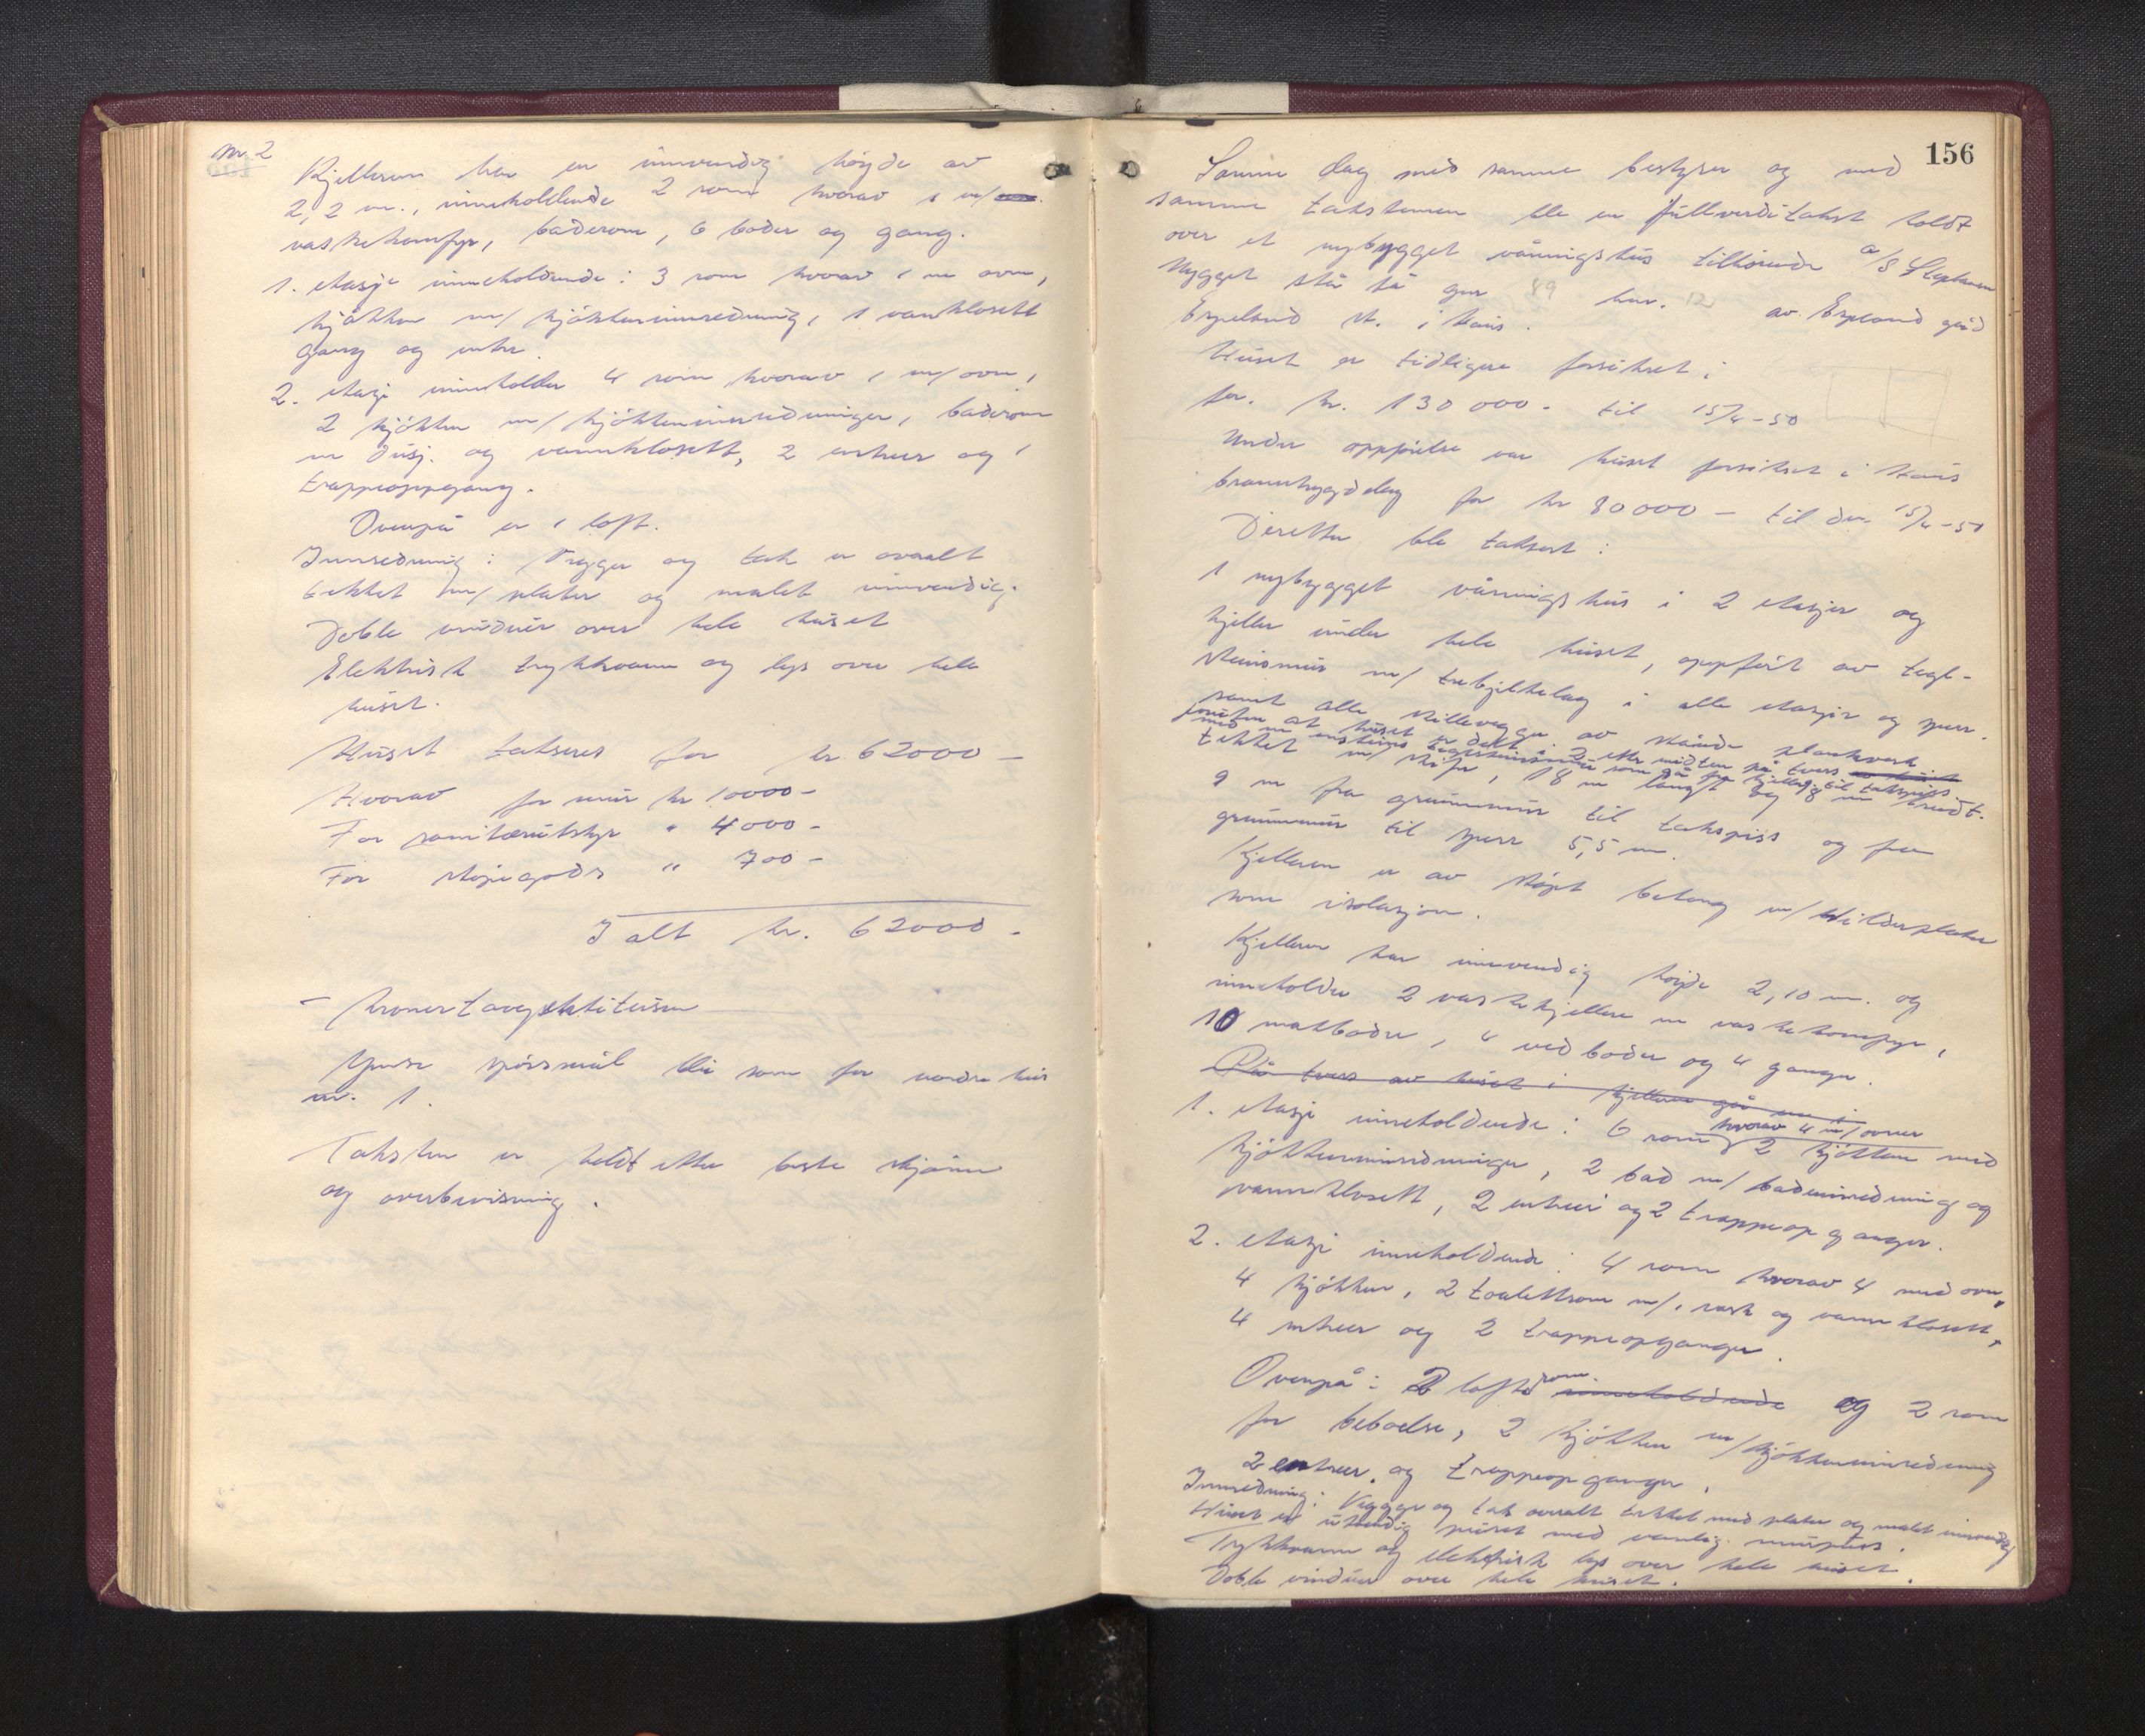 nr 2
Kjelleren har en innvendig høyde av
2,2 m., inneholdende 2 rom hvorav 1 m/
vaskekomfyr, baderom, 6 boder og gang.
1. etasje inneholdende: 3 rom hvorav 1 m ovn,
kjøkken m/ kjøkkeninnredning, 1 vannklosett
gang og entre.
2. etasje inneholder 4 rom hvorav 1 m/ ovn,
2 kjøkken m/ kjøkkeninnredninger, baderom
m dusj. og vannklosett, 2 entreer og 1
trappeoppgang.
Ovenpå er 1 loft.
Innredning: Vegger og tak er overalt
tekket m/ plater og malt innvendig.
Doble vinduer over hele huset
Elektrisk trykkvann og lys over hele
huset.
Huset takseres for kr 62000 –
Hvorav for mur kr 10000 –
For sanitærutstyr " 4000 –
For støpegods " 700 –
I alt kr. 62000 –
– kroner
Yndre spørsmål blir som for våndre hus
nr. 1.
Taksten er holdt etter beste skjønn
og overbevisning.
156
Samme dag med samme bestyrer og med
samme takstmenn ble en fullverditakst holdt
over et nybygget våningshus tilhørende a/s Stephansen
bygget står på gnr 89 bnr. 12 av Espeland gård
Espeland st. i Haus.
Huset er tidligere forsikret i
for. kr. 130 000 – til 15/4 – 50
Under oppførelse var huset forsikret i Haus
brannhygdelag for kr 80000 – til den 15/4 – 50
Deretter ble taksert:
1 nybygget våningshus i 2 etasjer og
kjeller under hele huset, oppført av tegl-
steinsmur m/ trebjelkelag i alle etasjer og sperr.
samt alle skillevegger av stånde plankverk
foruten at huset er delt i 2 etter midten på tvers av huset
med en ensteins teglsteinsmur som går fra kjeller til takspiss.
tekket m/ skifer, 18 m langt og 8 m bredt.
9 m fra grunnmur til takspiss og fra
grunnmur til sperr 5,5 m.
Kjelleren er av støpt betong m/ plater
som isolasjon.
Kjelleren har innvendig høyde 2,10 m. og
inneholder 2 vaskekjellere m vaskekomfyr,
10 matboder, 4 vedboder og 4 ganger.
På tvers av huset i kjelleren går en i
1. etasje inneholdende: 6 rom hvorav 4 m/ovner 2 kjøkken med
kjøkkeninnredninger, 2 bad m/ badeinnredning og
vannklosett, 2 entreer og 2 trappeopganger.
2. etasje inneholdende: 4 rom hvorav 4 med ovn,
4 kjøkken, 2 toalettrom m/ 1 vask og vannklosett,
4 entreer og 2 trappeopganger.
Ovenpå: 2 lofts rom. inneholdende og 2 rom
for beboelse, 2 kjøkken m/ kjøkkeninnredning
2 entreer. og trappeopganger.
Innredning: Vegger og tak overalt tekket med plater og malt innvendig
Huset er utvendig pusset med vanlig murpuss.
Trykkvann og elektrisk lys over hele huset.
Doble vinduer over hele huset.